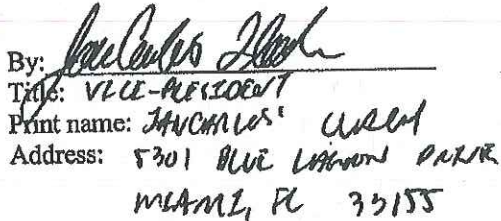 By:
Title: VICE-PRESIDENT
Print name:
Address: 5301 BLUE LAGOON DRIVE
MIAMI, FL 33155